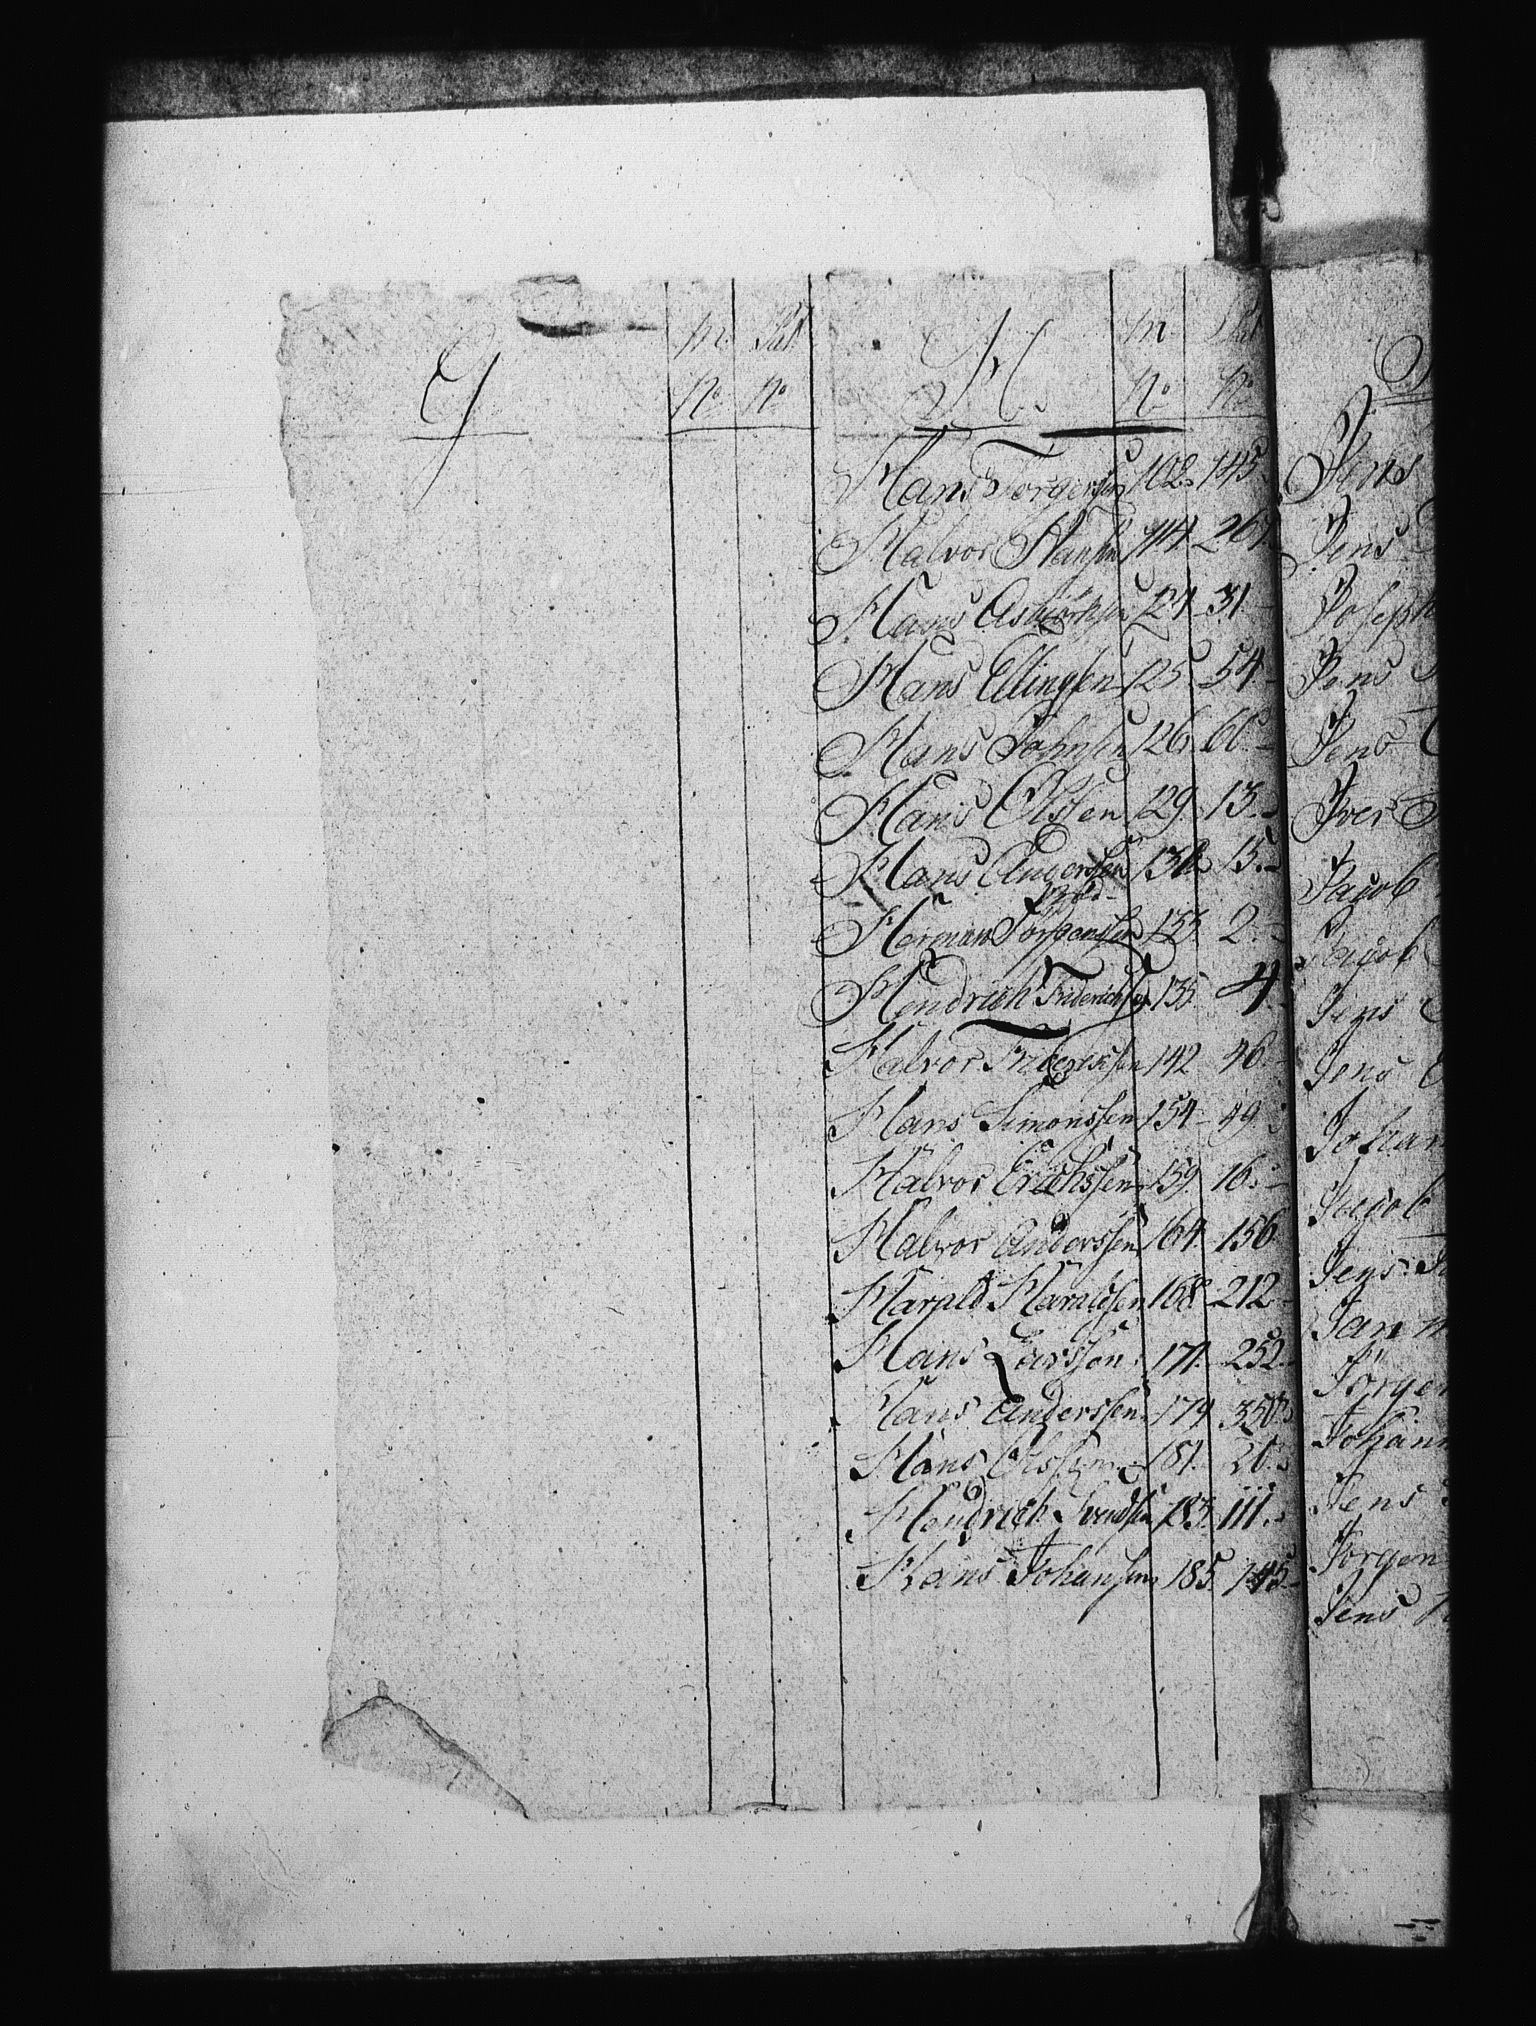 G
m Pat
No No
H
m Pat
No No
Hans Torgersen 102 145
Halvor Hansen 114 267
Hans 124 31
Hans Ellingsen 125 54
Hans Johnsen 126 60
Hans Olssen 129 13
Hans Anderssen 130 15
Herman Jørgenssen 133 2
Hendrich Friderichsen 135 4
Halvor 142 46
Hans Simonssen 154 49
Halvor Erichssen 159 16
Halvor Anderssen 164 156
Harald Haraldsen 168 212
Hans Larssen 171 252
Hans Anderssen 179 350
Hans Olssen 181 20
Hendrich Svendsen 183 111
Hans Johansen 185 145
Jens
Jens
Joseph
Jens
Jens
Iver
Jacob
Jacob
Jens
Jens
Johan
Jacob
Jens
Jan
Jørgen
Johann
Jens
Jørgen
Jens